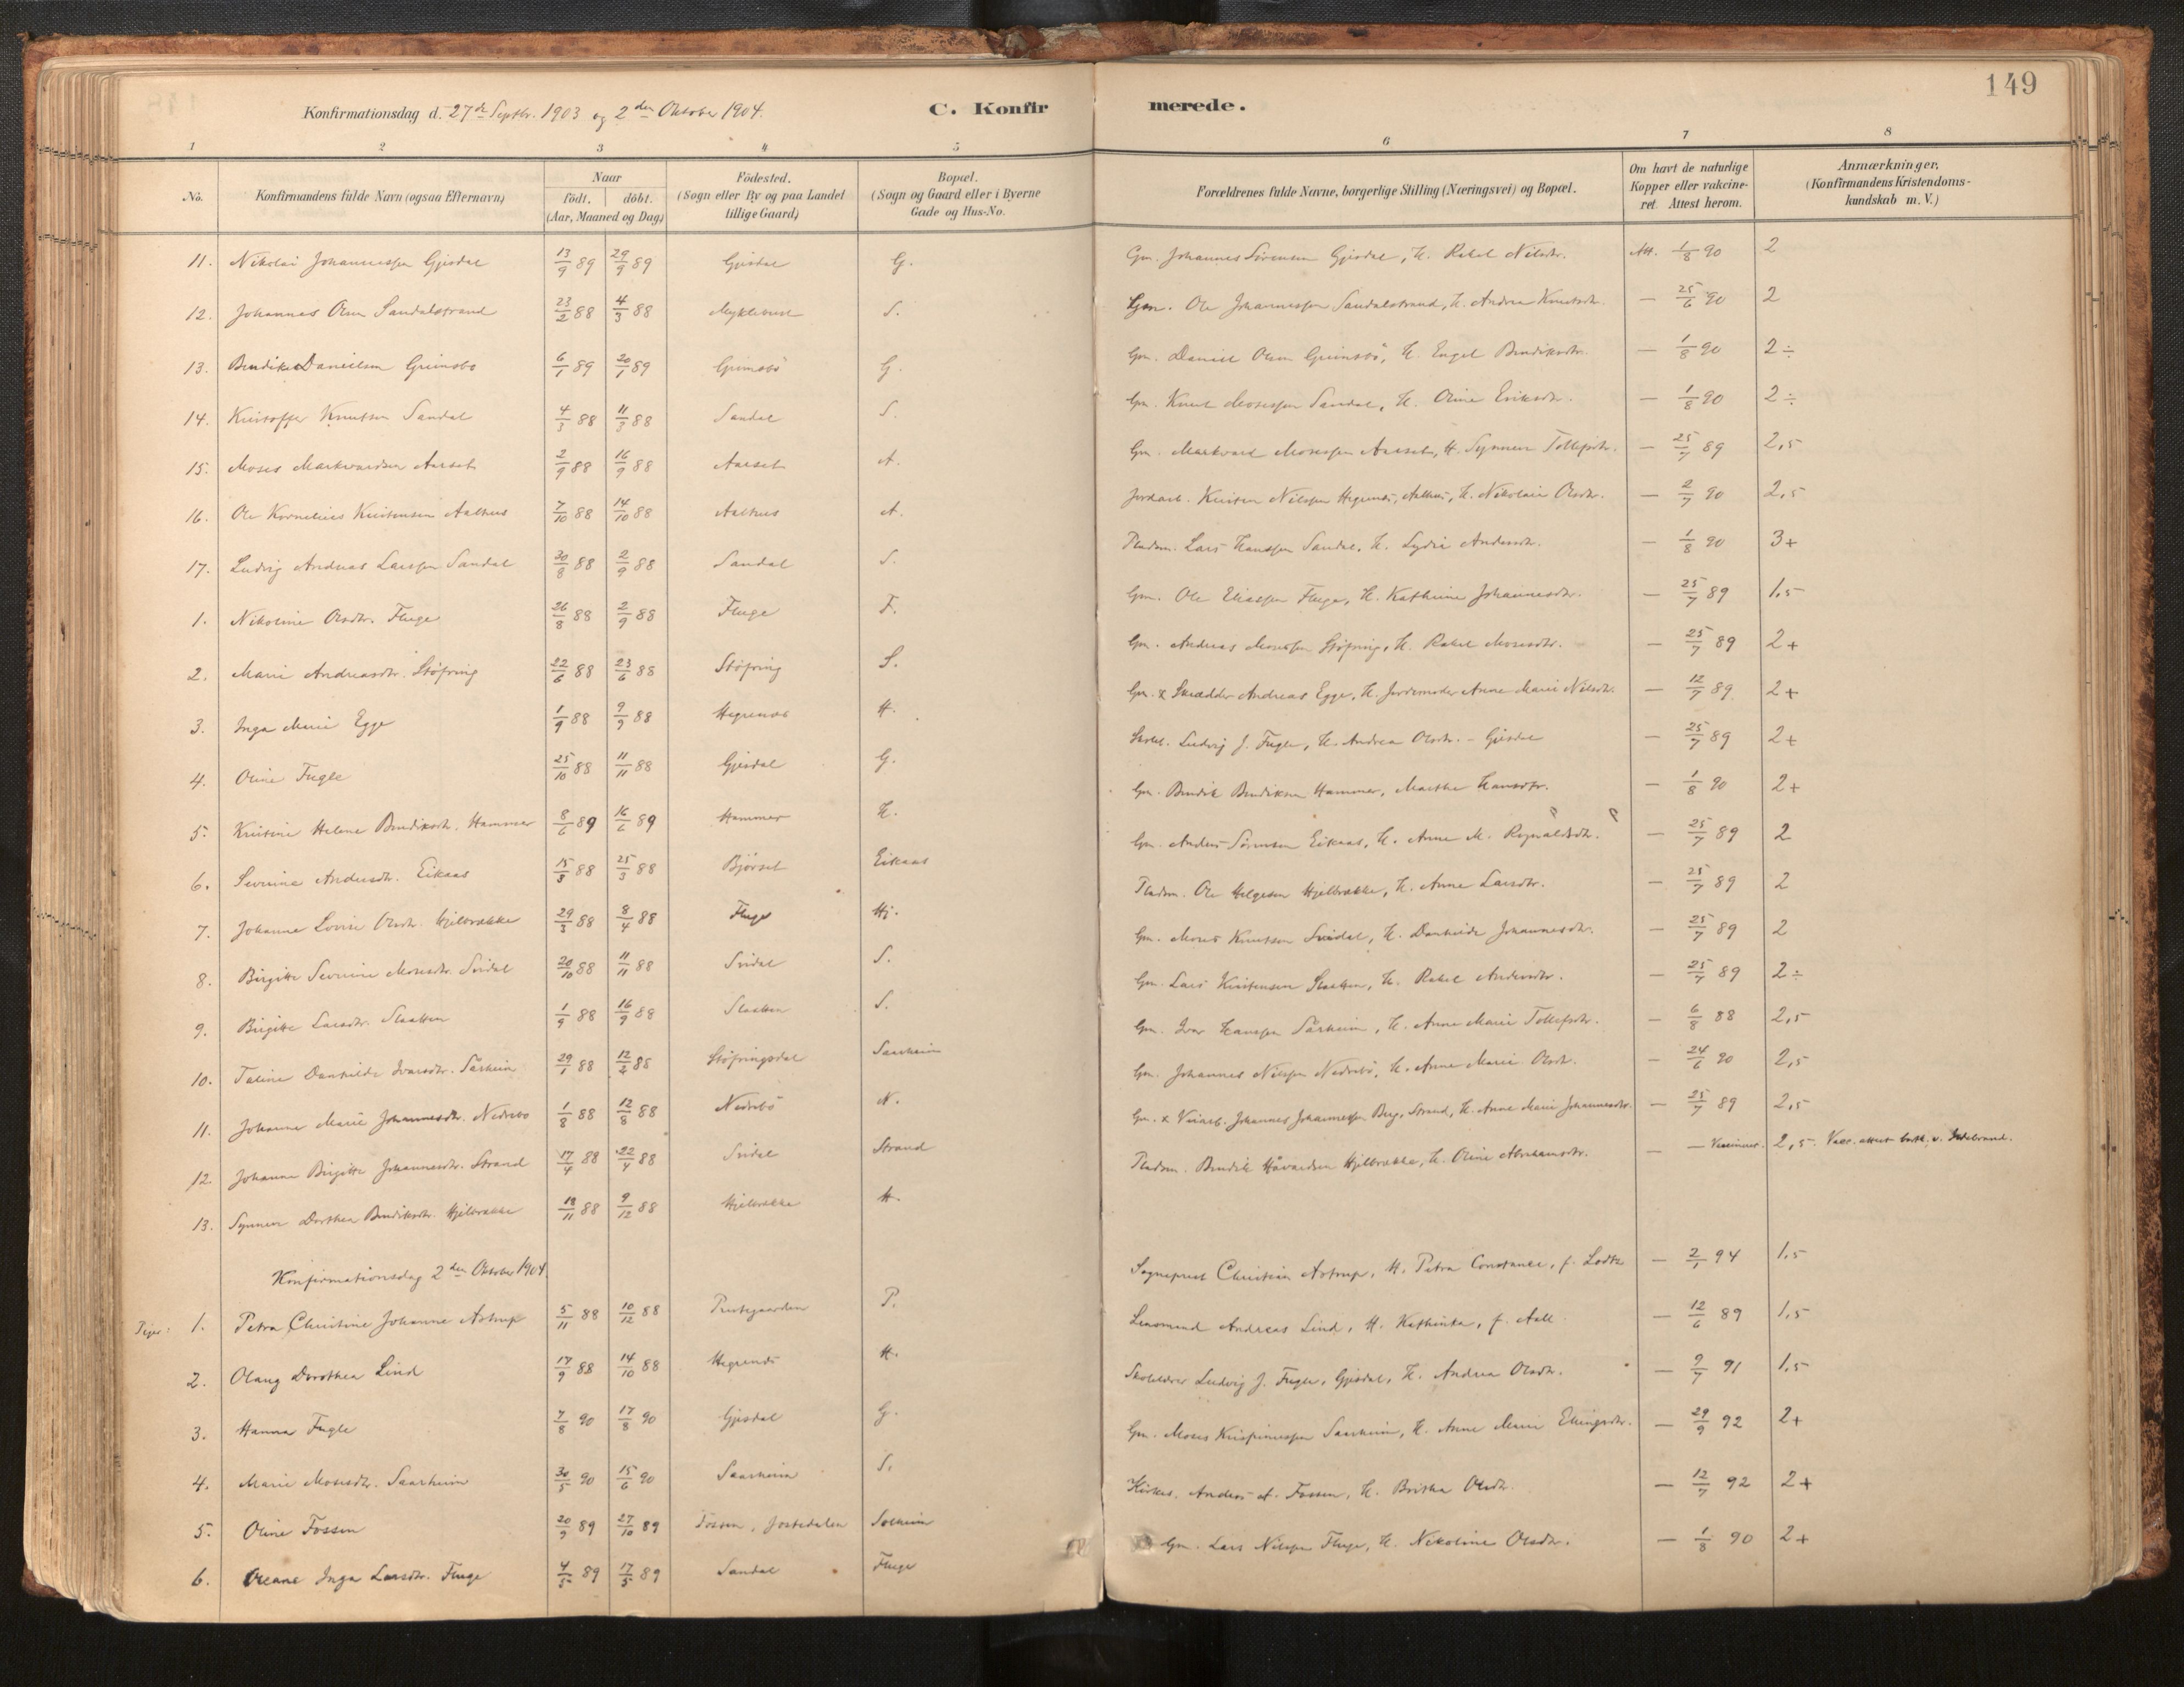 149
Konfirmationsdag d. 27de Septbr. 1903 og 2den Oktober 1904.
C. Konfirmerede.
1 2 3 4 5 6 7 8
No.
Konfirmandens fulde Navn (ogsaa Efternavn)
Naar
födt. döbt.
(Aar, Maaned og Dag)
Födested.
(Sogn eller By og paa Landet
tillige Gaard)
Bopæl.
(Sogn og Gaard eller i Byerne
Gade og Hus-No.
Forældrenes fulde Navne, borgerlige Stilling (Næringsvei) og Bopæl.
Om havt de naturlige
Kopper eller vakcine-
ret. Attest herom.
Anmærkninger.
(Konfirmandens Kristendoms-
kundskab m. V.)
11. Nikolai Johannessen Gjesdal 13/9 89 29/9 89 Gjesdal G. Gm. Johannes Sörensen Gjesdal, H. Rakel Nilsdtr. Att. 1/8 90 2
12. Johannes Olsen Sandalstrand 23/2 88 4/3 88 Myklebust S. Gm. Ole Johannessen Sandalstrand, H. Andrea Knutsdtr. — 25/6 90 2
13. Bendik Danielsen Grimsbö 6/1 89 20/1 89 Grimsbö G. Gm. Daniel Olsen Grimsbö, H. Engel Bendiksdtr. — 1/8 90 2 ÷
14. Kristoffer Knutsen Sandal 4/3 88 11/3 88 Sandal S. Gm. Knut Mosessen Sandal, H. Oline Eriksdtr. — 1/8 90 2 ÷
15. Moses Markvardsen Aarset 2/9 88 16/9 88 Aarset A. Gm. Markvard Mosessen Aarset, H. Synneve Tollefsdtr. — 25/7 89 2,5
16. Ole Kornelius Kristensen Aalhus 7/10 88 14/10 88 Aalhus A. Jordarb. Kristen Nilssen Hegrenes, Aalhus, H. Nikolai Olsdtr. — 2/7 90 2,5
17. Ludvig Andreas Larssen Sandal 20/8 88 2/9 88 Sandal S. Pladsm. Lars Hanssen Sandal, H. Lydie Andersdtr. — 1/8 90 3+
1. Nikoline Olsdtr. Fluge 26/8 88 2/9 88 Fluge F. Gm. Ole Eliassen Fluge, H. Kathrine Johannesdtr. — 25/7 89 1,5
2. Marie Andreasdtr. Stöfring 22/6 88 23/6 88 Stöfring S. Gm. Andreas Mosessen Stöfring, H. Rakel Mosesdtr. — 25/7 89 2+
3. Inga Marie Egge 1/9 88 9/9 88 Hegrenes H. Gm. & Skrædder Andreas Egge, H. Jordemoder Anne Marie Nilsdtr. — 12/7 89 2+
4. Oline Fugle 25/10 88 11/11 88 Gjesdal G. Skolel. Ludvig J. Fugle, H. Andrea Olsdtr. - Gjesdal — 25/7 89 2+
5. Kristine Helene Bendiksdtr. Hammer 8/6 89 16/6 89 Hammer H. Gm. Bendik Bendiksen Hammer, Marthe Hansdtr. — 1/8 90 2+
6. Severine Andersdtr. Eikaas 15/3 88 25/3 88 Bjørset Eikaas Gm. Anders Sörensen Eikaas, H. Anne M. Rognaldsdtr. — 25/7 89 2
7. Johanne Lovise Olsdtr. Hjelbrække 29/3 88 8/4 88 Fluge Hj. Pladsm. Ole Helgesen Hjelbrække, H. Anne Larsdtr. — 25/7 89 2
8. Birgitte Severine Mosesdtr. Svidal 20/10 88 11/11 88 Svidal S. Gm. Moses Knutsen Svidal, H. Danhilde Johannesdtr. — 25/7 89 2
9. Birgitte Larsdtr. Slaatten 1/9 88 16/9 88 Slaatten S. Gm. Lars Kristensen Slaatten, H. Rakel Andersdtr. — 25/7 89 2 ÷
10. Taline Danhilde Ivarsdtr. Sårheim 29/1 88 12/2 88 Stöfringsdal Saarheim Gm. Ivar Hanssen Sårheim, H. Anne Marie Tollefsdtr. — 6/8 88 2,5
11. Johanne Marie Johannesdtr. Nedrebö 1/8 88 12/8 88 Nedrebö N. Gm. Johannes Nilssen Nedrebö, H. Anne Marie Olsdtr. — 24/6 90 2,5
12. Johanne Birgitte Johannesdtr. Strand 17/4 88 22/4 88 Svidal Strand Gm. & Veiarb. Johannes Johannessen Berg, Strand, H. Anne Marie Johannesdtr. — 25/7 89 2,5
13. Synneve Dorthea Bendiksdtr. Hjelbrække 18/11 88 9/12 88 Hjelbrække H. Pladsm. Bendik Håvardsen Hjelbrække, H. Oline Abrahamsdtr. — — Vaccineret. 2,5. Vacc. attest
Konfirmationsdag 2den Oktober 1904.
Piger: 1. Petra Christine Johanne Astrup 5/11 88 10/12 88 Prestegaarden P. Sogneprest Christian Astrup, H. Petra Constance, f. Lodtz — 2/1 94 1,5
2. Olaug Dorothea Lind 17/9 88 14/10 88 Hegrenes H. Lensmand Andreas Lind, H. Kathinka, f. Aall — 12/6 89 1,5
3. Hanna Fugle 7/8 90 17/8 90 Gjesdal G. Skolelærer Ludvig J. Fugle, Gjesdal, H. Andrea Olsdtr. — 9/7 91 1,5
4. Marie Mosesdtr. Saarheim 30/5 90 15/6 90 Saarheim S. Gm. Moses Krispinussen Saarheim, H. Anne Marie Ellingsdtr. — 29/9 92 2+
5. Oline Fossen 20/9 89 27/10 89 Fossen, Jostedalen Solheim Kirkes. Anders A. Fossen, H. Britha Olsdtr. — 12/7 92 2+
6. Oleane Inga Larsdtr. Fluge 4/5 89 17/5 89 Sandal Fluge Gm. Lars Nilssen Fluge, H. Nikoline Olsdtr. — 1/8 90 2+